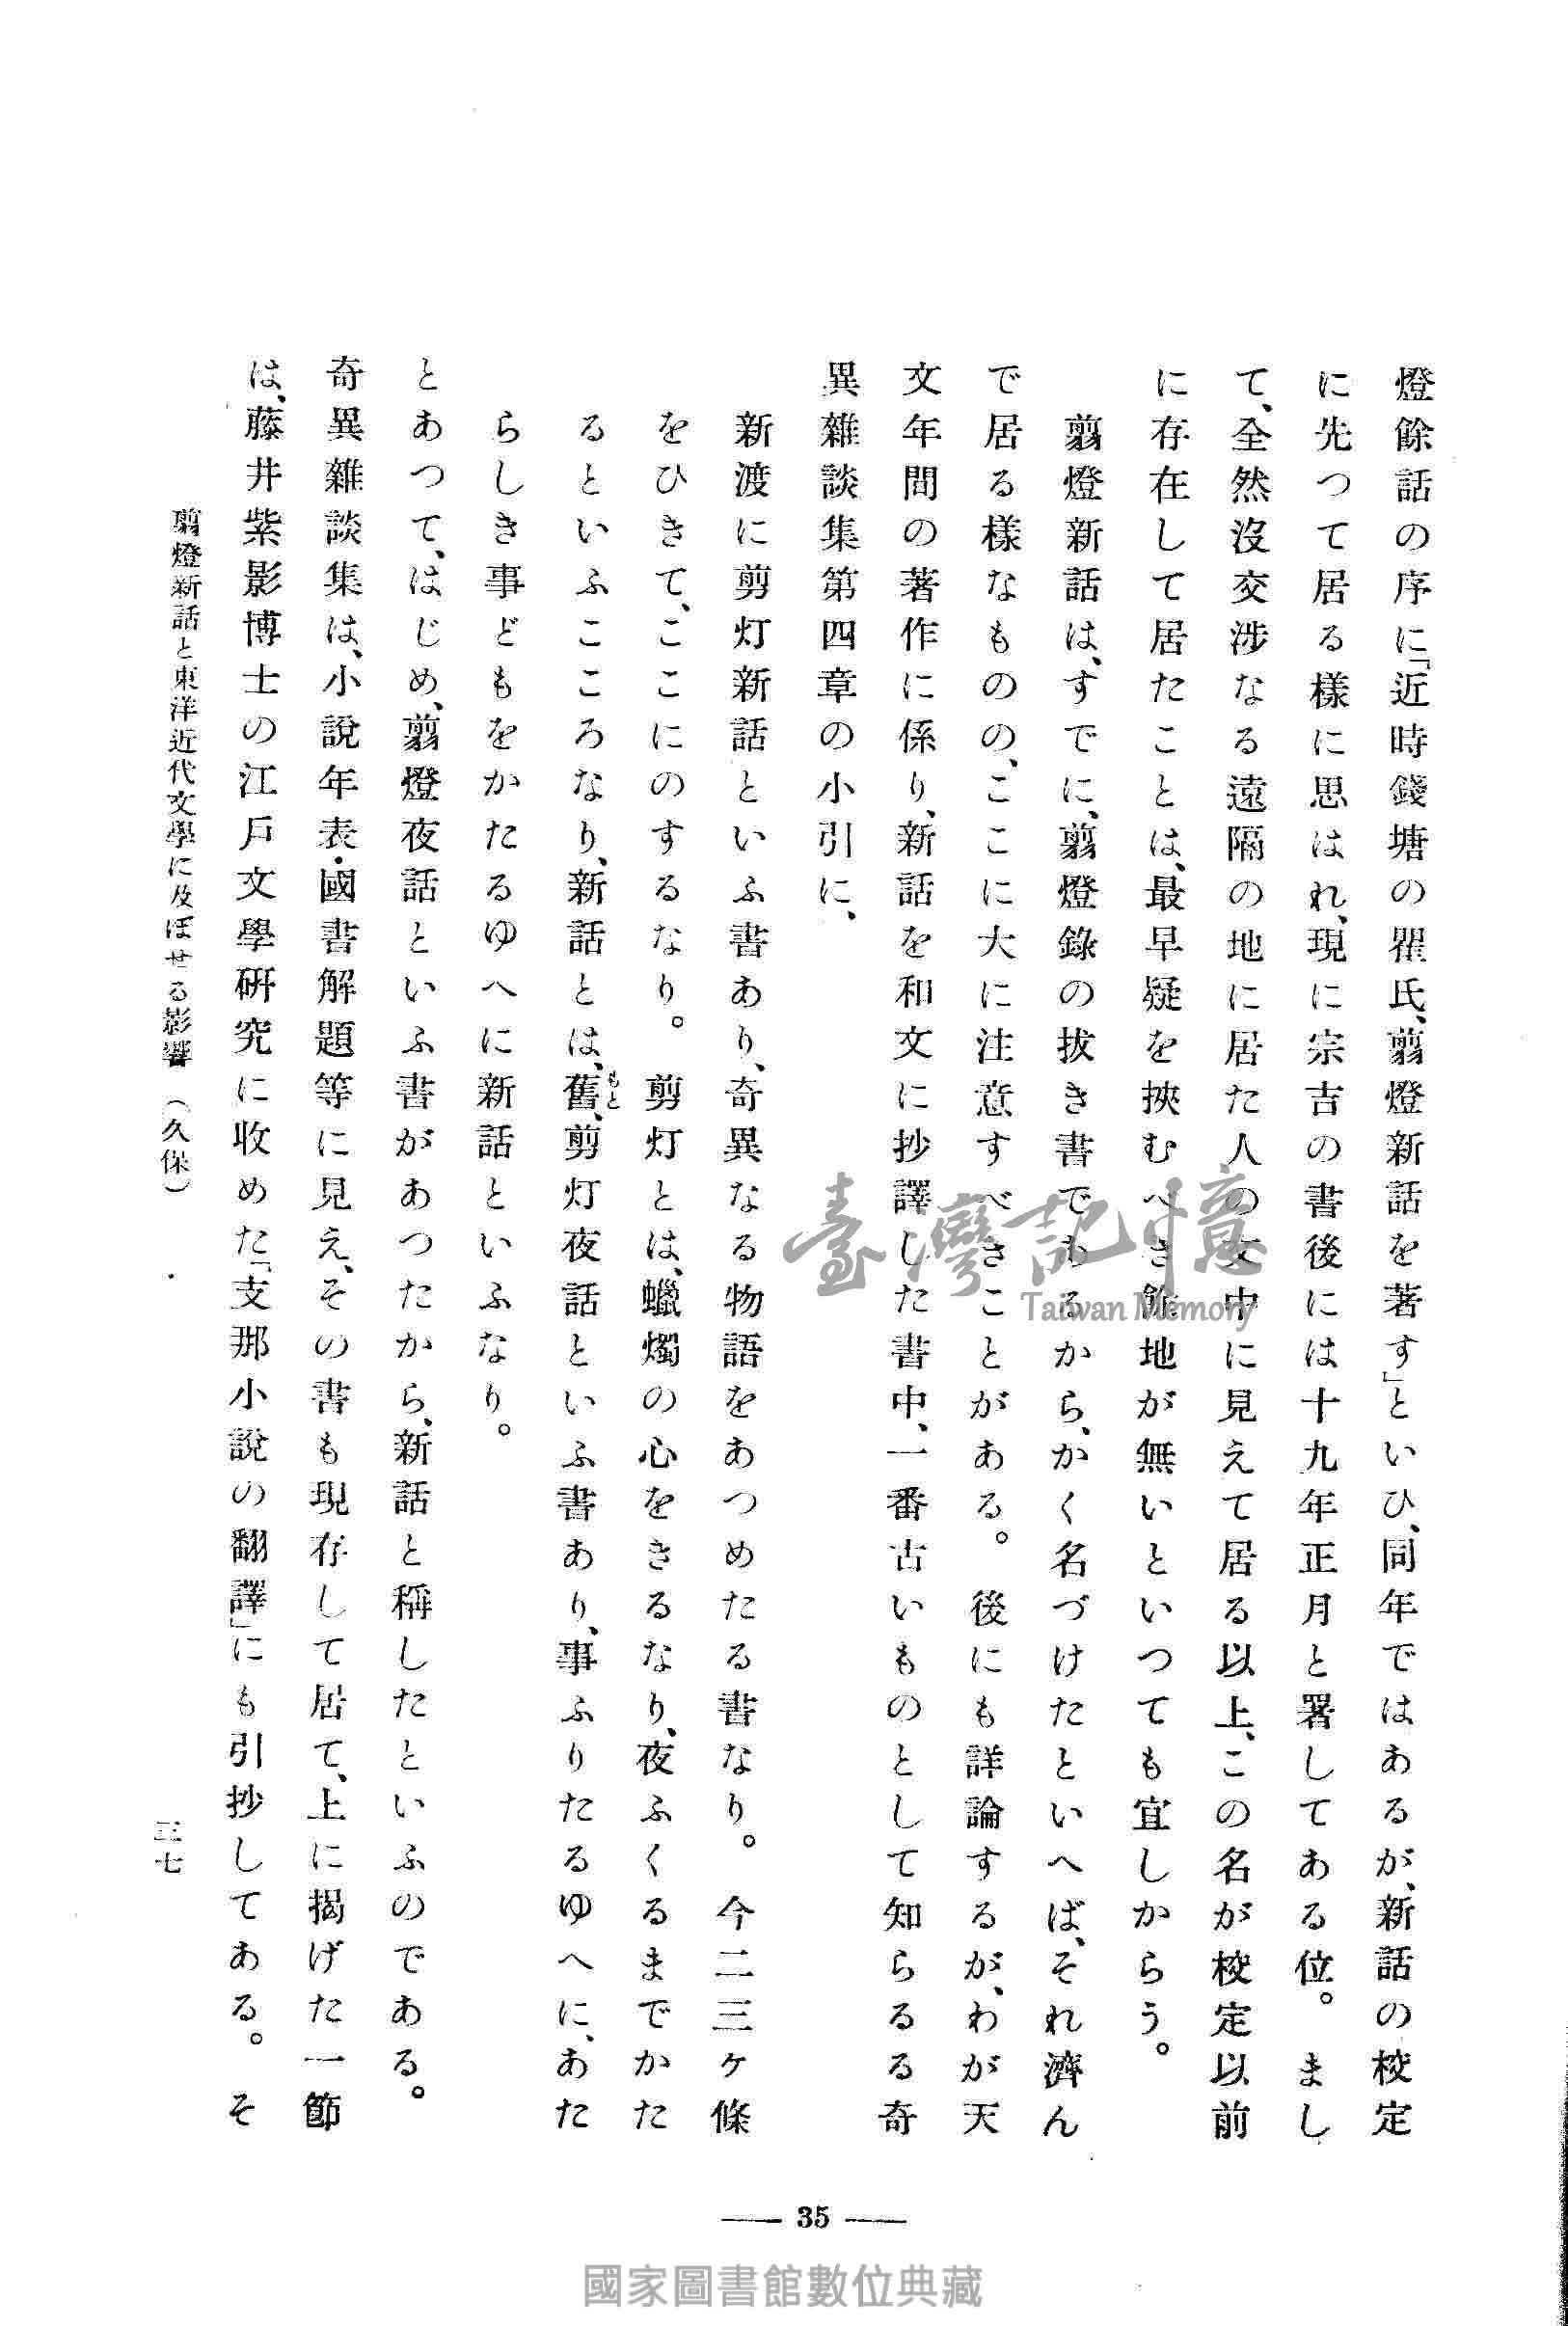 燈餘話の序に「近時錢塘の瞿氏、翦燈新話を著す」といひ、同年ではあるが、新話の校定
に先つて居る樣に思はれ、現に宗吉の書後には十九年正月と署してある位。まし
て、全然沒交涉なる遠隔の地に居た人の文中に見えて居る以上、この名が校定以前
に存在して居たことは、最早疑を挾むべき餘地が無いといつても宜しからう。
翦燈新話は、すでに、翦燈錄の拔き書であるから、かく名づけたといへば、それ濟ん
で居る樣なものの、ここに大に注意すべきことがある。後にも詳論するが、わが天
文年間の著作に係り、新話を和文に抄譯した書中、一番古いものとして知らるる奇
異雜談集第四章の小引に、
新渡に剪灯新話といふ書あり、奇異なる物語をあつめたる書なり。今二三ヶ條
をひきて、ここにのするなり。剪灯とは、蠟燭の心をきるなり、夜ふくるまでかた
るといふこころなり、新話とは、舊もと、剪灯夜話といふ書あり、事ふりたるゆへに、あた
らしき事どもをかたるゆへに新話といふなり。
とあつて、はじめ、翦燈夜話といふ書があつたから、新話と稱したといふのである。
奇異雜談集は、小說年表・國書解題等に見え、その書も現存して居て、上に揭げた一節
は、藤井紫影博士の江戶文學硏究に收めた「支那小說の翻譯」にも引抄してある。そ
翦燈新話と東洋近代文學に及ぼせる影響（久保）
三七
35
臺灣記憶
Taiwan Memory
國家圖書館數位典藏